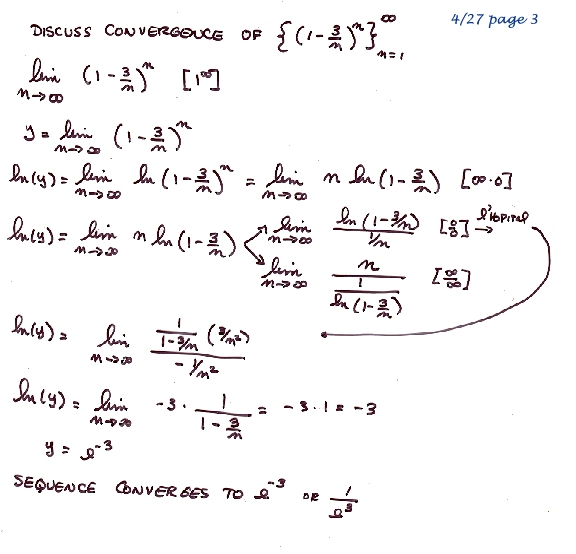 4/27 page 3
DISCUSS CONVERGENCE OF {(1-3/n)^n}_{n=1}^∞
lim_{n→∞} (1-3/n)^n [1^∞]
y = lim_{n→∞} (1-3/n)^n
ln(y) = lim_{n→∞} ln(1-3/n)^n = lim_{n→∞} n ln(1-3/n) [∞·0]
ln(y) = lim_{n→∞} n ln(1-3/n) lim_{n→∞} ln(1-3/n)/(1/n) [0/0] → l'Hopital
lim_{n→∞} n/(1/ln(1-3/n)) [∞/∞]
ln(y) = lim_{n→∞} (1/(1-3/n) (3/n²))/(-1/n²)
ln(y) = lim_{n→∞} -3 · 1/(1-3/n) = -3·1 = -3
y = e^-3
SEQUENCE CONVERGES TO e^-3 OR 1/e^3